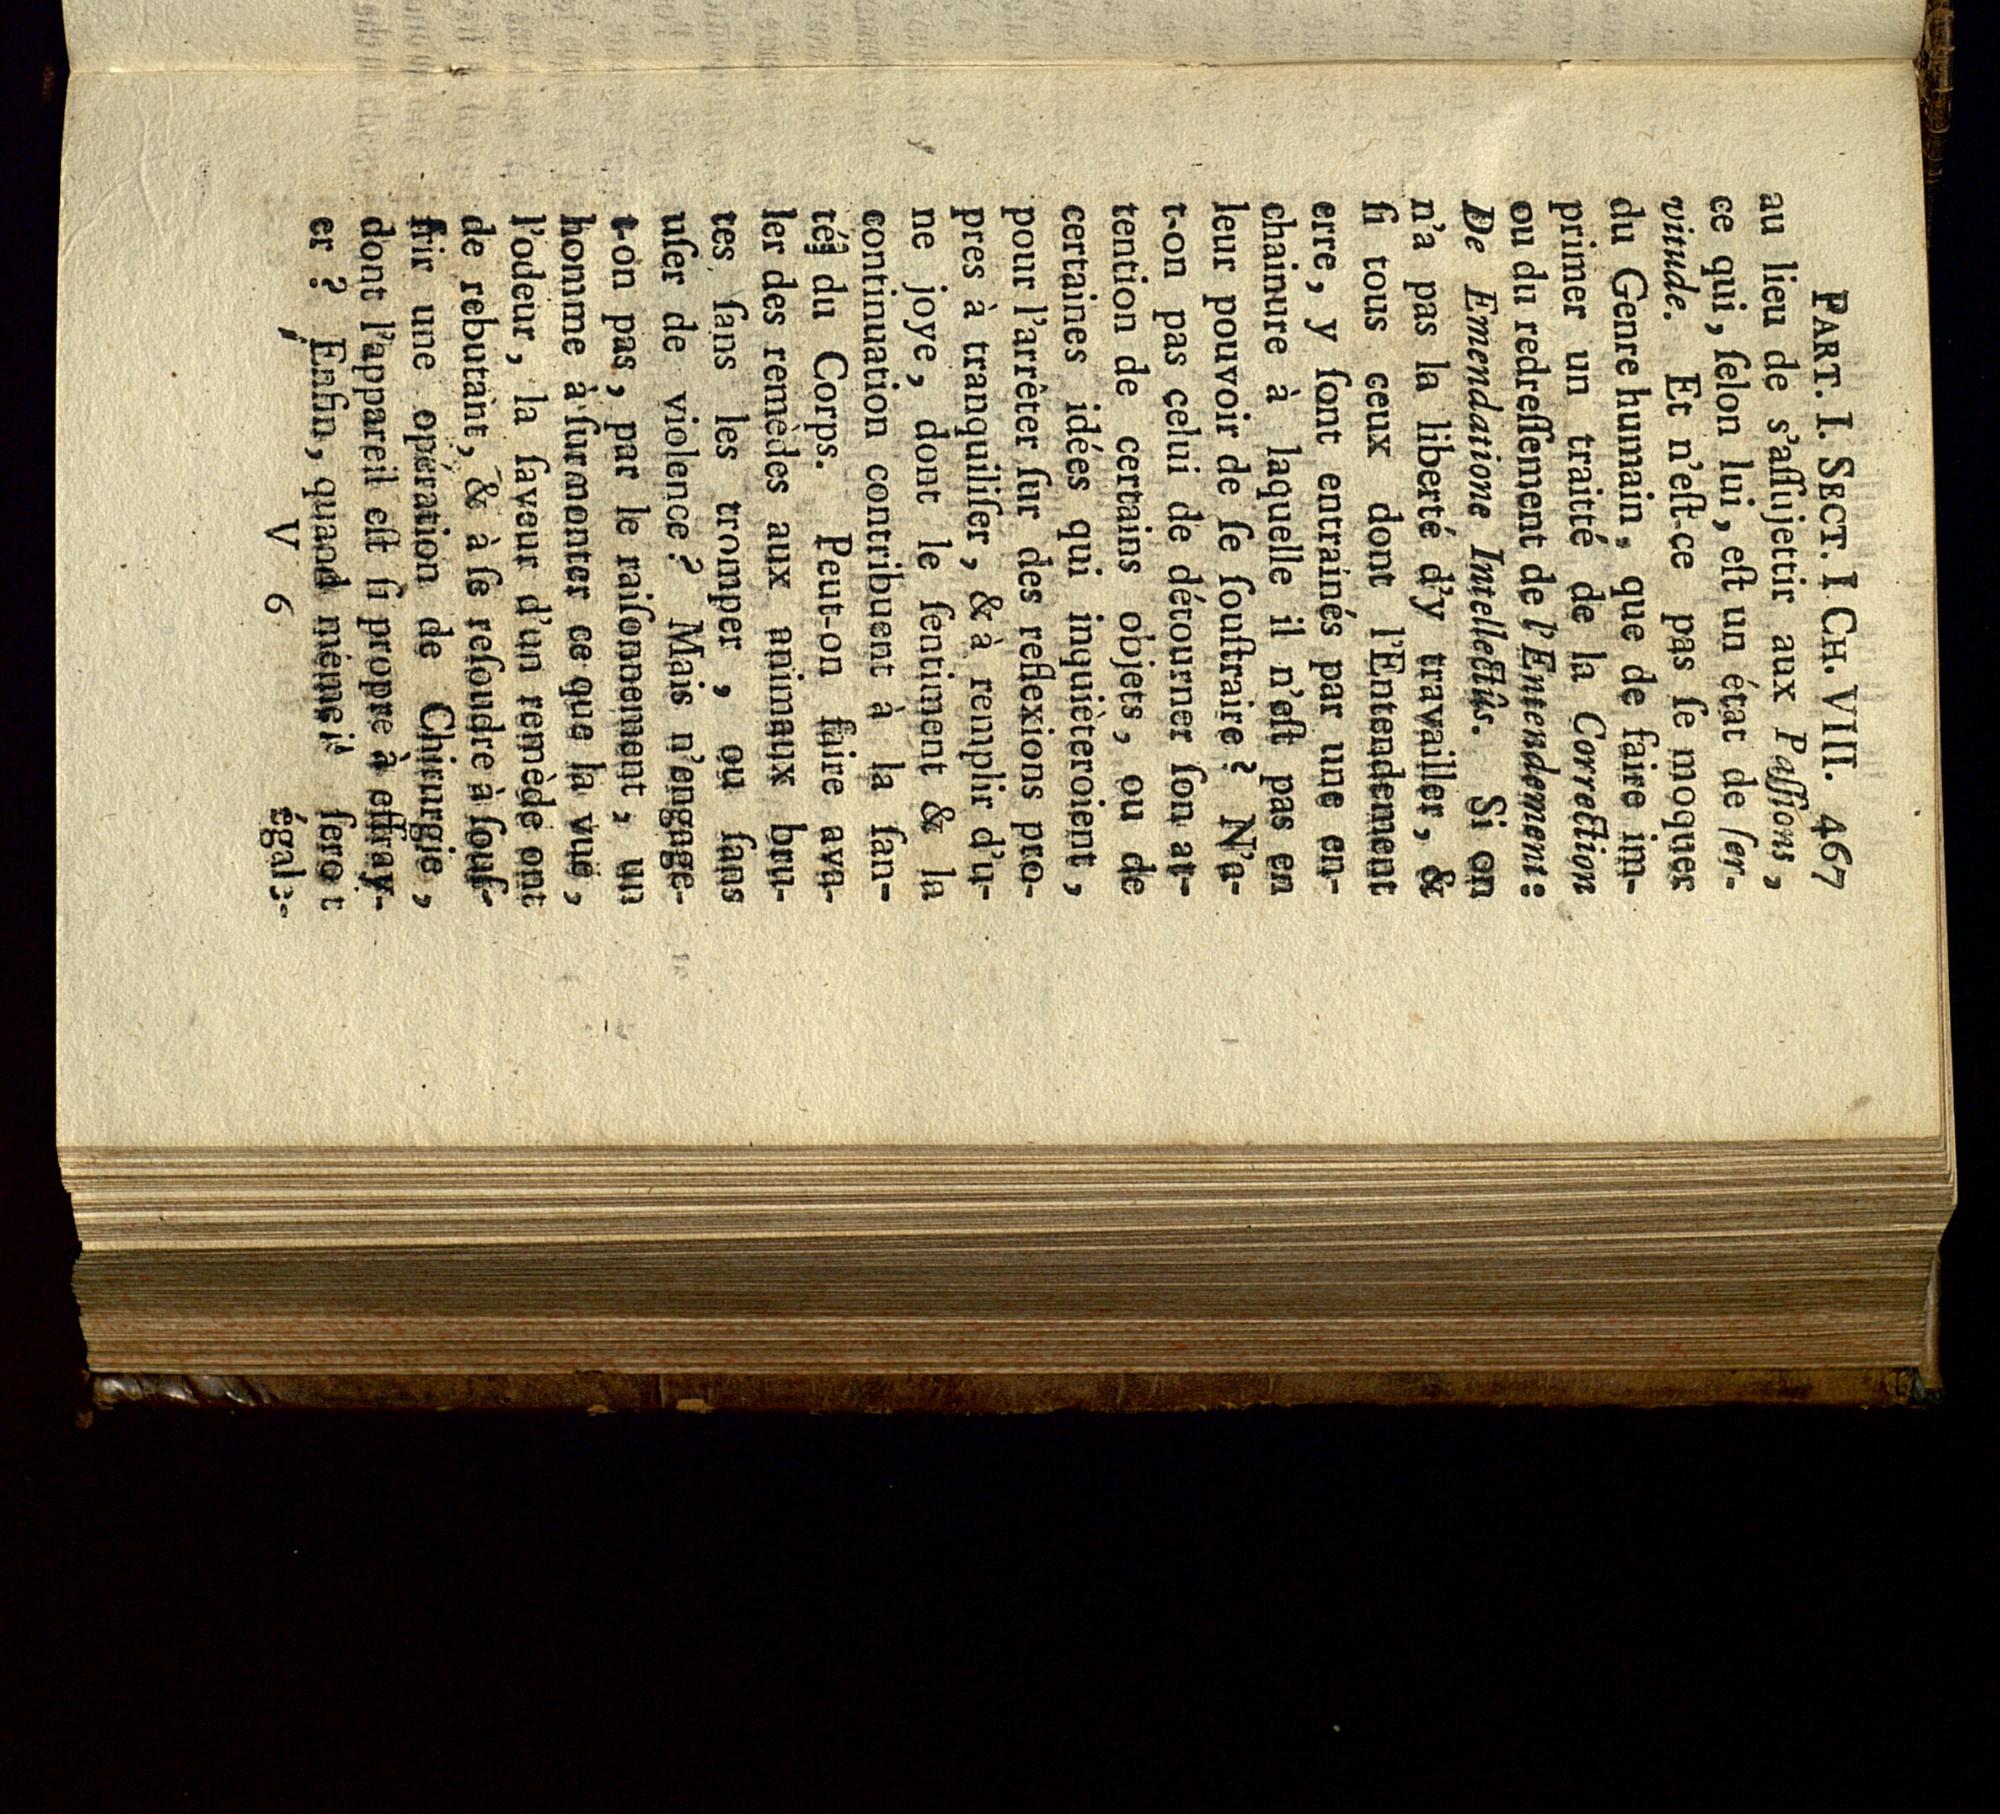 PART. I. SECT. I CH. VIII. 467
au lieu de s'aſſujettir aux Paſſions,
ce qui, ſelon lui, eſt un état de ſer-
vitude. Et n'eſt-ce pas ſe moquer
du Genre humain, que de faire im-
primer un traitté de la Correction
ou du redreſſement de l'Entendement:
De Emendatione Intellectûs. Si on
n'a pas la liberté d'y travailler, &
ſi tous ceux dont l'Entendement
erre, y ſont entrainés par une en-
chainure à laquelle il n'eſt pas en
leur pouvoir de ſe ſouſtraire? N'a-
t-on pas celui de détourner ſon at-
tention de certains objets, ou de
certaines idées qui inquièteroient,
pour l'arrêter ſur des reflexions pro-
pres à tranquiliſer, & à remplir d'u-
ne joye, dont le ſentiment & la
continuation contribuent à la ſan-
té du Corps. Peut-on faire ava-
ler des remèdes aux animaux bru-
tes ſans les tromper, ou ſans
uſer de violence? Mais n'engage-
t-on pas, par le raiſonnement, un
homme à ſurmonter ce que la vuë,
l'odeur, la ſaveur d'un remède ont
de rebutànt, & à ſe reſoudre à ſouf-
frir une opération de Chirurgie,
dont l'appareil eſt ſi propre à effray-
er? Enfin, quand même il ſero t
V 6 égale-